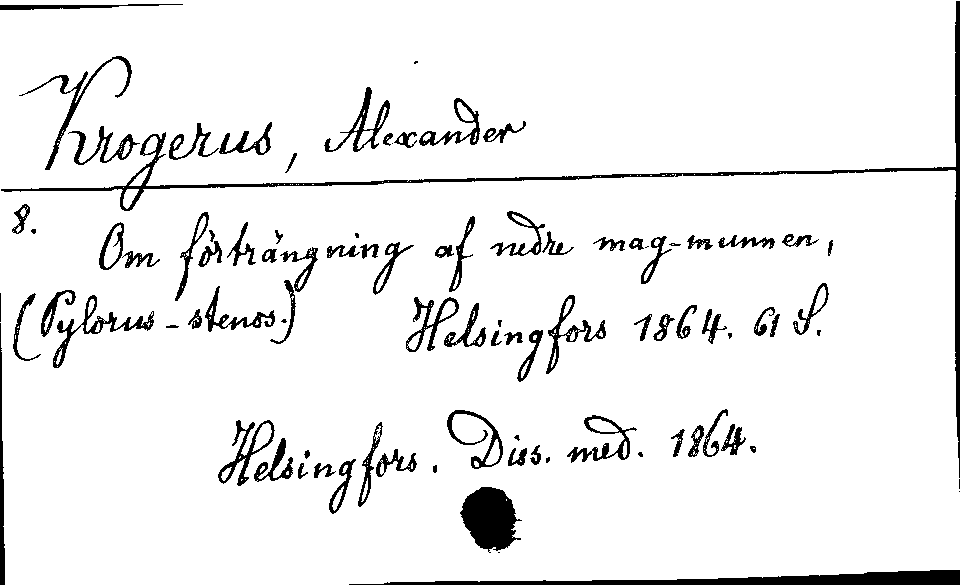 Krogerus, Alexander
8.
Om förträngning af nedre mag-munnen,
(Pylorus-stenos.) Helsingfors 1864. 61 S.
Helsingfors. Diss. med. 1864.